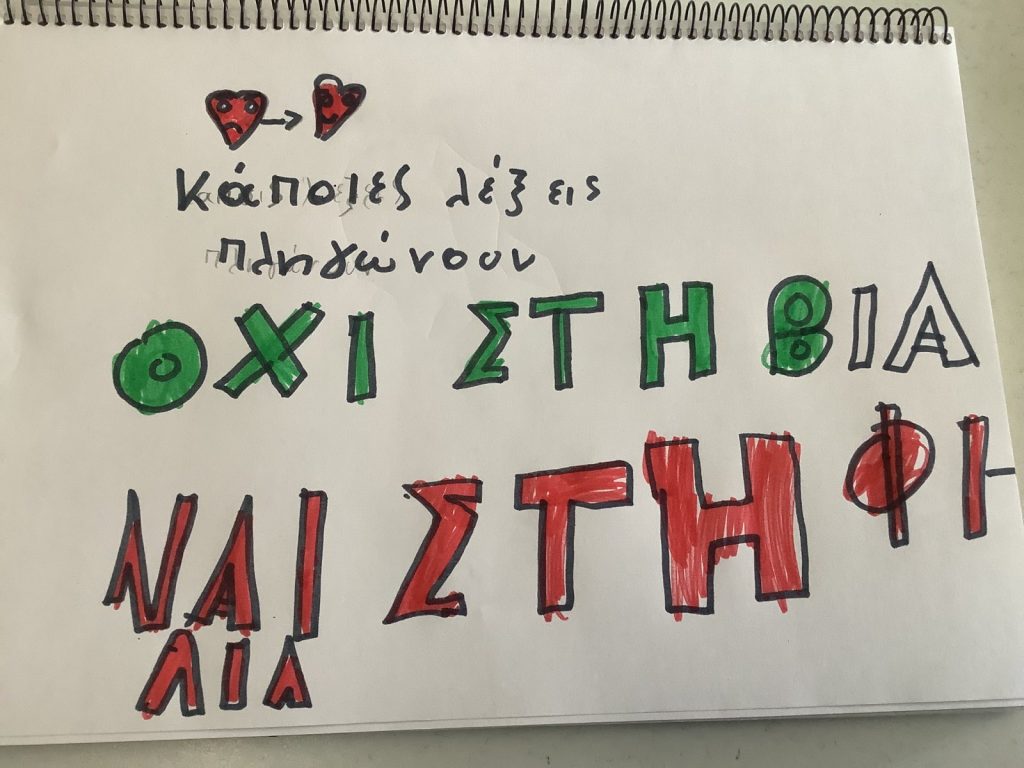 κάποιες λέξεις
πληγώνουν
ΟΧΙ ΣΤΗ ΒΙΑ
ΝΑΙ ΣΤΗ ΦΙ-
ΛΙΑ